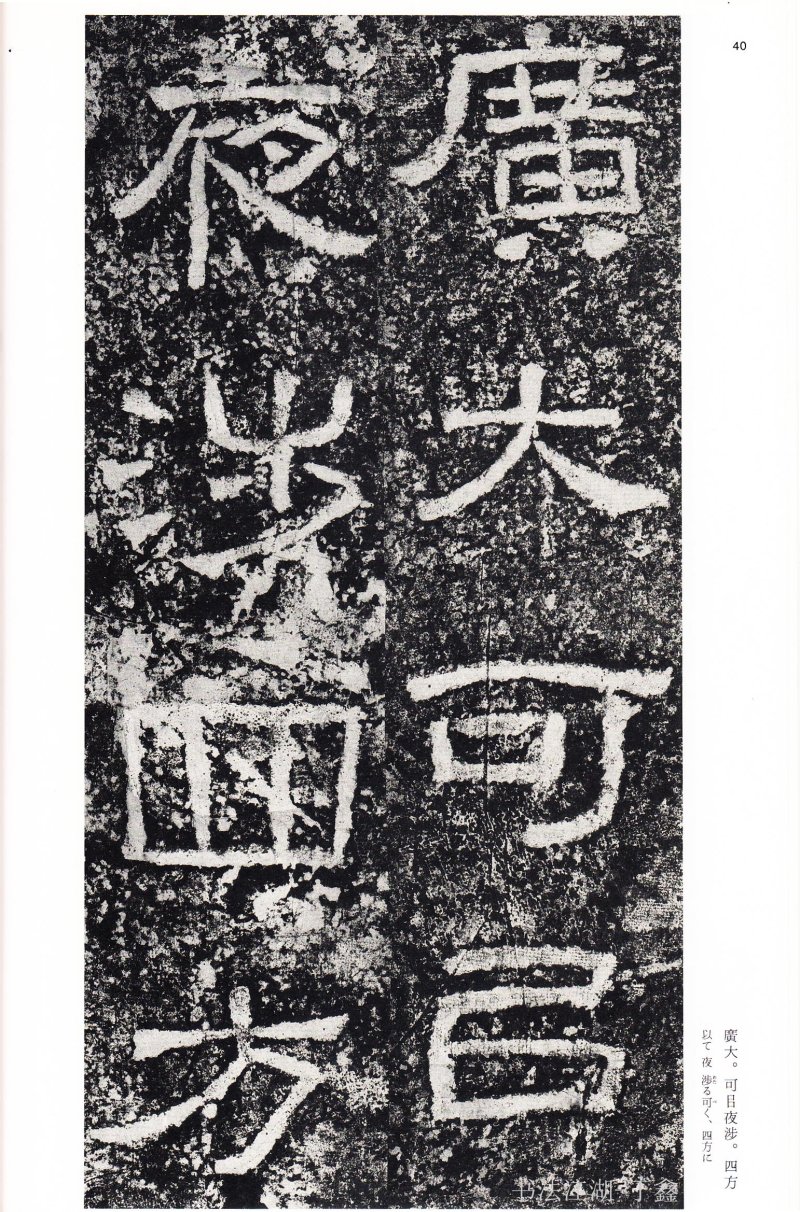 40
廣大可㠯
夜涉四方
廣大。可㠯夜涉。四方
以て夜涉る可く、四方に
书法江湖